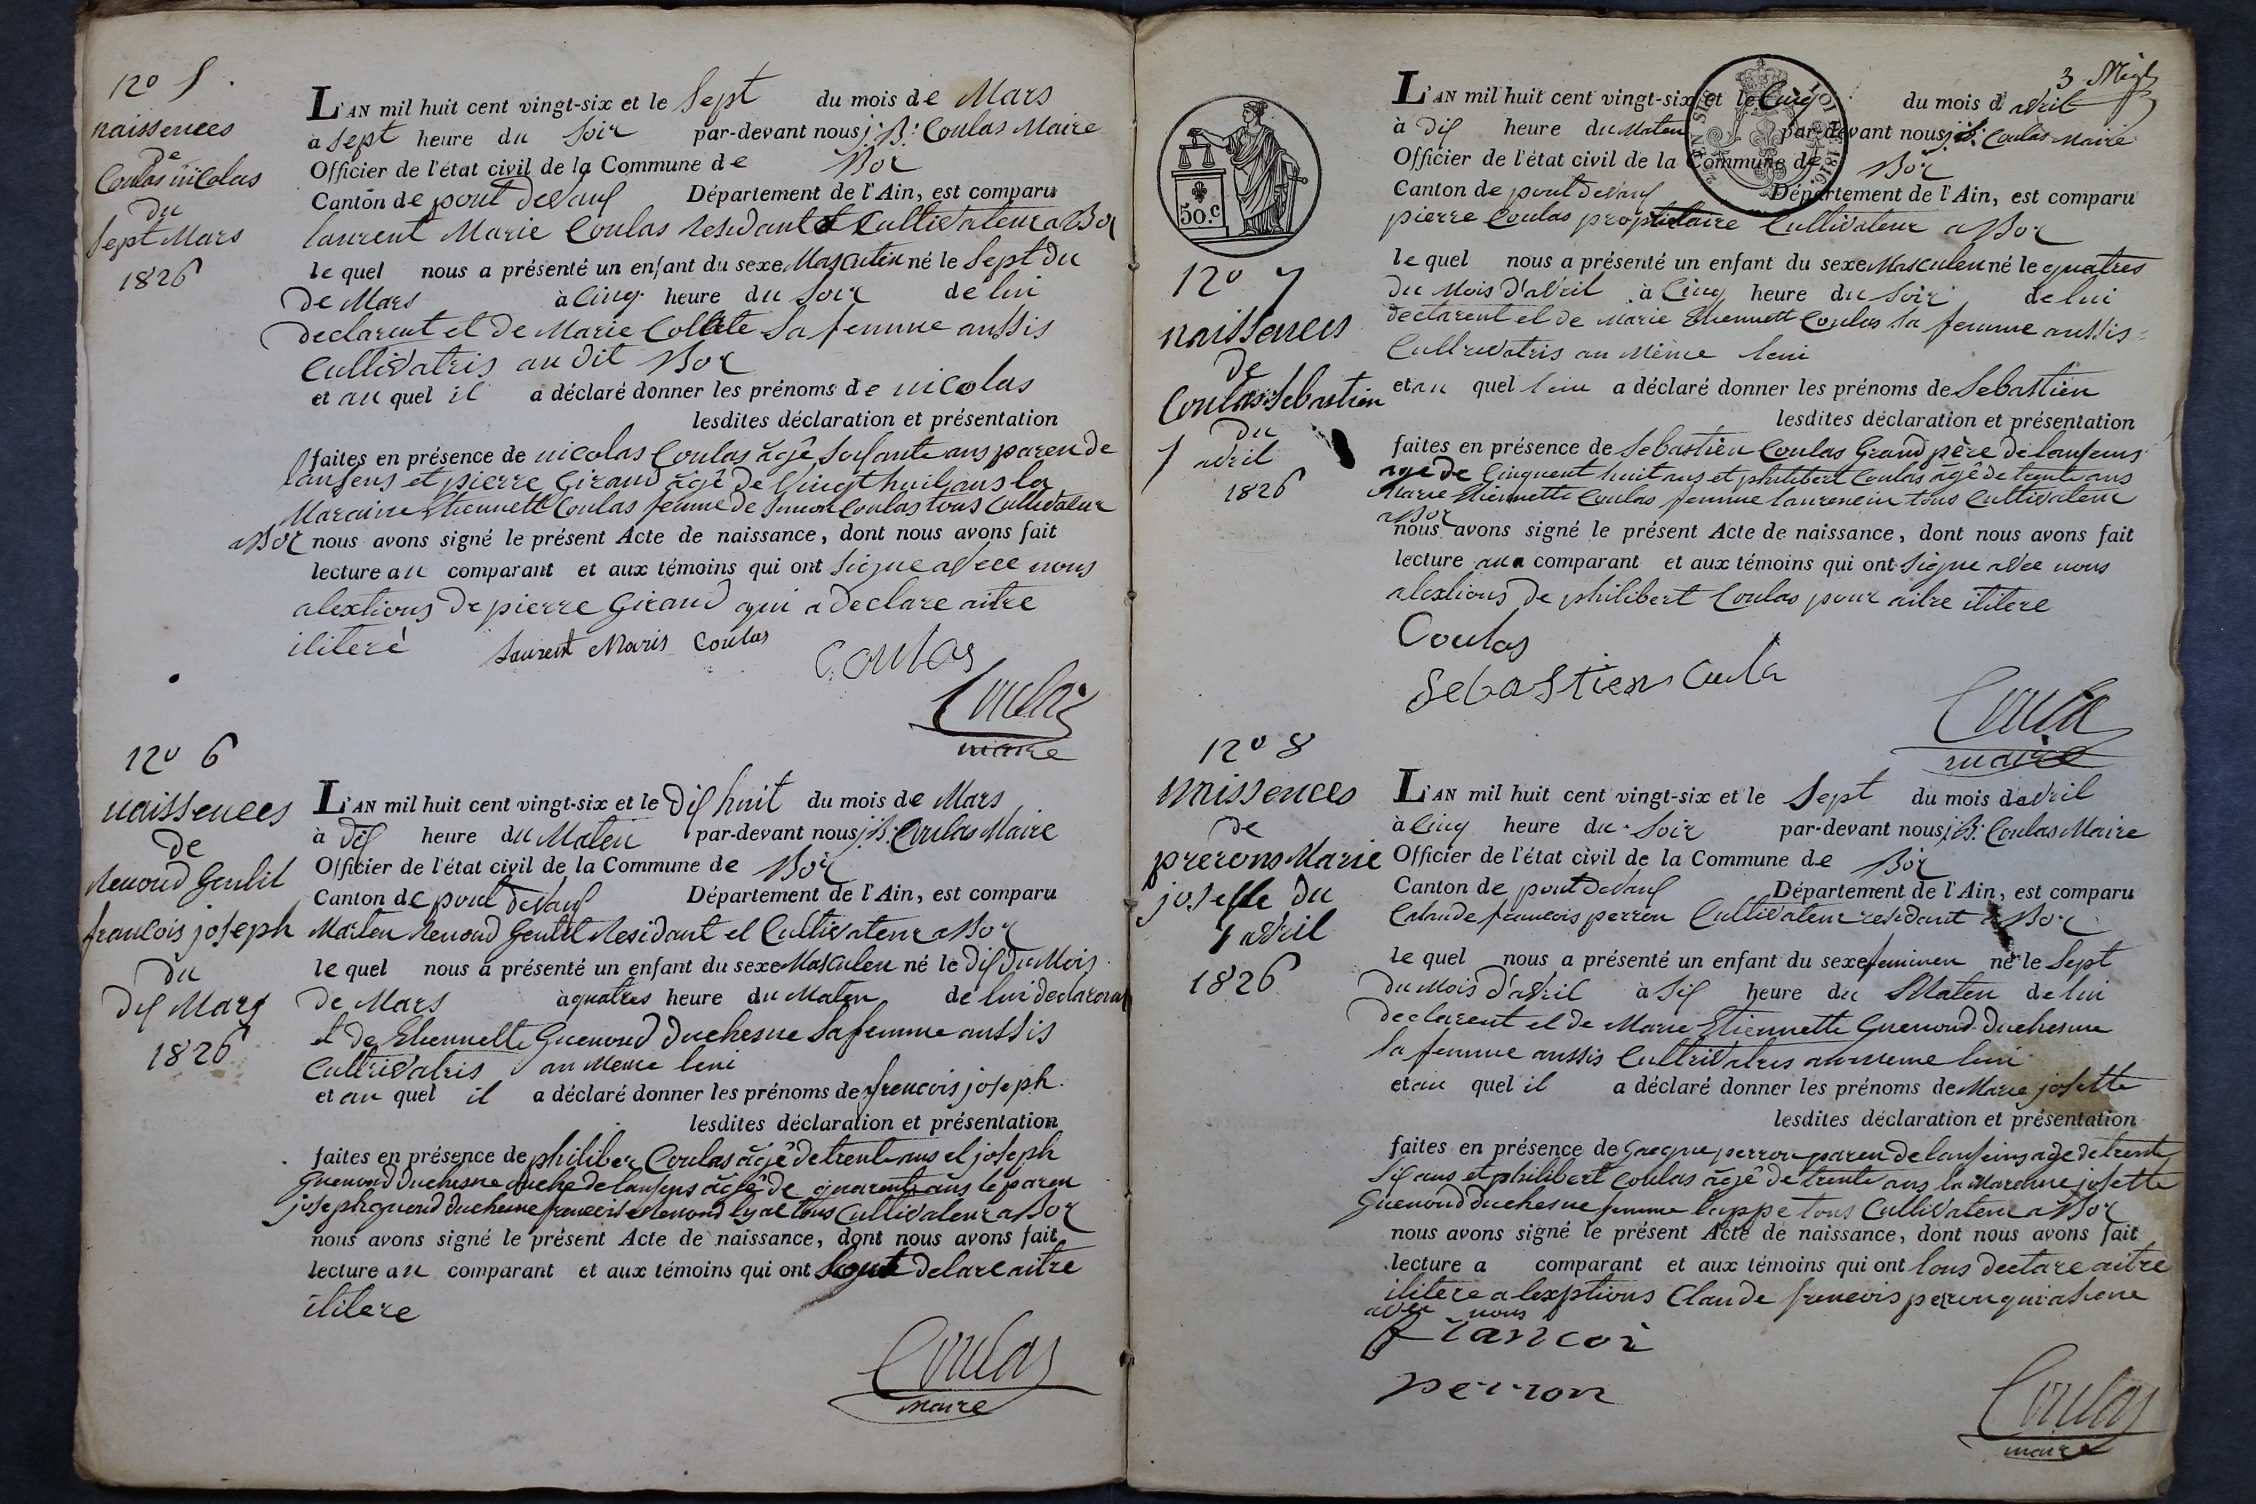 n° 5
naissences
de
Coulas nicolas
du
Sept Mars
1826
L'AN mil huit cent vingt-six et le Sept du mois de Mars
à Sept heure du Soir par-devant nous j. B. Coulas Maire
Officier de l'état civil de la Commune de Boz
Canton de pont devaux Département de l'Ain, est comparu
laurent Marie Coulas residant et Cultivateur a Boz
le quel nous a présenté un enfant du sexe Masculin né le Sept du
de Mars à Cinq heure du Soir de lui
declarent et de Marie Collete Sa femme aussis
Cultivatris au dit Boz
et au quel il a déclaré donner les prénoms de nicolas
lesdites déclaration et présentation
faites en présence de nicolas Coulas âgé Soisante ans paren de
lansens et pierre Giraud âgé de Vingt huit ans la
Maraine Etiennette Coulas femme de Simon Coulas tous Cultivateur
a Boz nous avons signé le présent Acte de naissance, dont nous avons fait
lecture au comparant et aux témoins qui ont Signe avec nous
alextions de pierre Giraud qui a declare aitre
iliteré Laurent Maris Coulas Coulas
Coulas
maire
n° 6
naissences
de
Renoud Gentil
francois joseph
du
dix Mars
1826
L'AN mil huit cent vingt-six et le dix huit du mois de Mars
à dix heure du Maten par-devant nous j. B. Coulas Maire
Officier de l'état civil de la Commune de Boz
Canton de pont devaux Département de l'Ain, est comparu
Marten Renoud Gentil Residant et Cultivateur a Boz
le quel nous a présenté un enfant du sexe Masculen né le dix du Mois
de Mars à quatres heure du Maten de lui declarent
et de Etiennette Guenoud duchesne Sa femme aussis
Cultrivatris au meme leui
et au quel il a déclaré donner les prénoms de frencois joseph
lesdites déclaration et présentation
faites en présence de philiber Coulas âgé de trente ans et joseph
Guenoud duchesne de lansens âgé de quarente ans le paren
joseph guenoud duchesne frencois Renoud tous Cultivateur a Boz
nous avons signé le présent Acte de naissance, dont nous avons fait
lecture au comparant et aux témoins qui ont delare aitre
ilitere
Coulas
maire
3
50.c
LOI DE 1816.
n° 7
naissences
de
Coulas Sebastien
du
5 avril
1826
L'AN mil huit cent vingt-six et le Cinq du mois d avril
à dix heure du Maten par-devant nous j. B. Coulas Maire
Officier de l'état civil de la Commune de Boz
Canton de pont devaux Département de l'Ain, est comparu
pierre Coulas propritaire Cultivateur a Boz
le quel nous a présenté un enfant du sexe Masculen né le quatres
du Mois d'avril à Cinq heure du Soir de lui
declarent et de Marie Etiennett Coulas Sa femme aussis
Cultrivatris au même leui
et au quel leui a déclaré donner les prénoms de Sebastien
lesdites déclaration et présentation
faites en présence de Sebastien Coulas Grand père de lansens
age de Cinquent huit ans et philibert Coulas âgé de trente ans
Marie Etiennette Coulas femme laurencin tous Cultivateur
a Boz
nous avons signé le présent Acte de naissance, dont nous avons fait
lecture au comparant et aux témoins qui ont Signe avec nous
alextions de philibert Coulas pour aitre ilitere
Coulas
Sebastien Cula
Coulas
maire
n° 8
naissences
de
prerons Marie
josette du
7 avril
1826
L'AN mil huit cent vingt-six et le Sept du mois d avril
à Cinq heure du Soir par-devant nous j. B. Coulas Maire
Officier de l'état civil de la Commune de Boz
Canton de pont devaux Département de l'Ain, est comparu
Calaude francois perron Cultivateur residant a Boz
le quel nous a présenté un enfant du sexe feminen né le Sept
du Mois d'avril à Six heure du Maten de lui
declarent et de Marie Etiennette Guenoud duchesne
Sa femme aussis Cultrivatris au meme leui
et au quel il a déclaré donner les prénoms de Marie josette
lesdites déclaration et présentation
faites en présence de Gacque perron paren de lansens age de trente
Six ans et philibert Coulas âgé de trente ans la Maraine josette
Guenoud duchesne femme tous Cultivateur a Boz
nous avons signé le présent Acte de naissance, dont nous avons fait
lecture a comparant et aux témoins qui ont tous declare aitre
ilitere alexptions Claude frencois perron qui a Signe
avec nous
francoi
perron
Coulas
maire